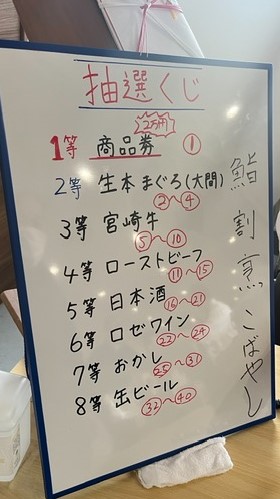 抽選くじ
2万円
1等 商品券 ①
2等 生本まぐろ(大間)
②～④
3等 宮崎牛
⑤～⑩
4等 ローストビーフ
⑪～⑮
5等 日本酒 ⑯～㉑
6等 ロゼワイン
㉒～㉔
7等 おかし
㉕～㉛
8等 缶ビール
㉜～㊵
鮨割烹こばやし